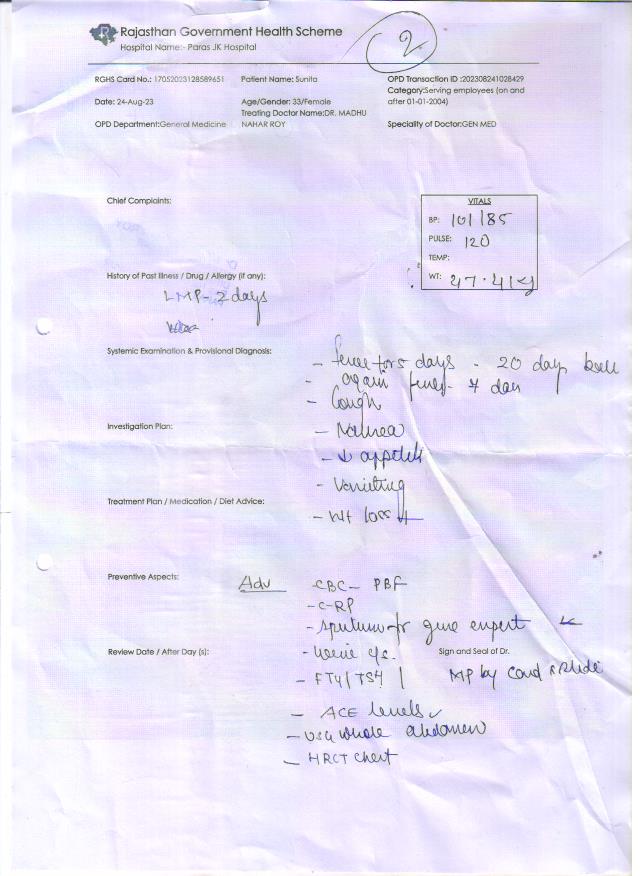 2
Rajasthan Government Health Scheme
Hospital Name:- Paras JK Hospital
RGHS Card No.: 17052023128589651 Patient Name: Sunita OPD Transaction ID :202308241028429
Category:Serving employees (on and after 01-01-2004)
Date: 24-Aug-23 Age/Gender: 33/Female
Treating Doctor Name:DR. MADHU NAHAR ROY
OPD Department:General Medicine Speciality of Doctor:GEN MED
Chief Complaints:
VITALS
BP: 101/85
PULSE: 120
TEMP:
WT: 47.41kg
History of Past Illness / Drug / Allergy (if any):
LMP - 2 days
Systemic Examination & Provisional Diagnosis:
- fever for 5 days - 20 day back
- again fever - 7 day
- Cough
Investigation Plan:
- Nausea
- ↓ appetite
- Vomiting
Treatment Plan / Medication / Diet Advice:
- Wt loss +
Preventive Aspects:
Adv - CBC - PBF
- C-RP
- Sputum for gene expert
Review Date / After Day (s):
- Urine c/s. Sign and Seal of Dr.
- FT4 / TSH / MP by Card & Slide
- ACE levels ✓
- USG whole abdomen
- HRCT chest